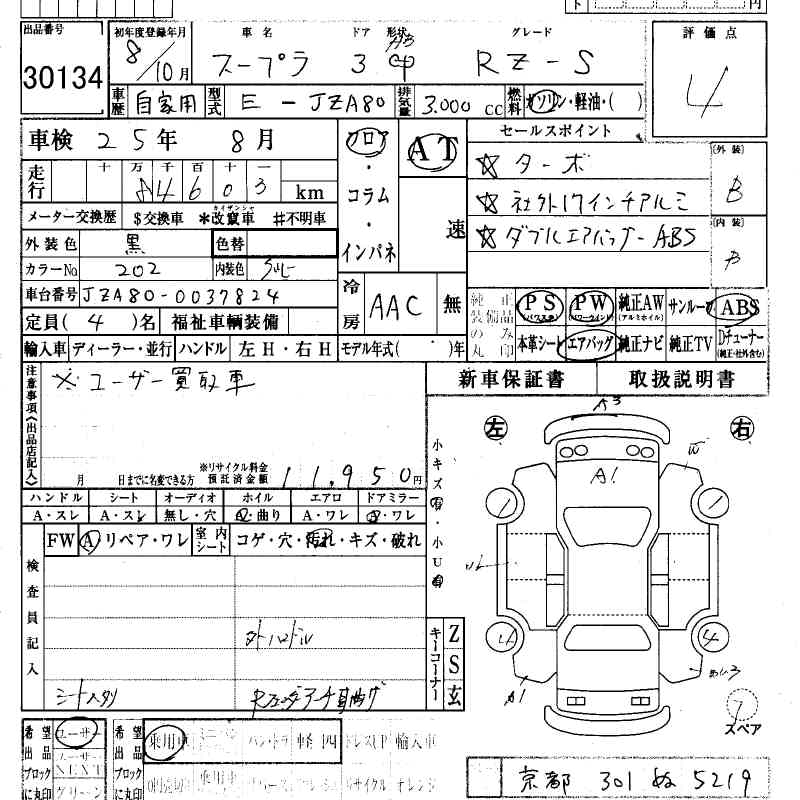 出品番号
30134
初年度登録年月 車名 ドア 形状 グレード 評価点
8/10月 スープラ 3 RZ-S 4
車歴 自家用 型式 E-JZA80 排気量 3.000cc 燃料 ガソリン・軽油・( )
車検 25年 8月 フロア・コラム・インパネ AT 速 セールスポイント
☆ ターボ
☆ 社外17インチアルミ
☆ ダブルエアバッグ ABS
(外装) B
(内装) B
走行 十 万 千 百 十 一
84603 km
メーター交換歴 $交換車 *改竄車 #不明車
外装色 黒 色替
カラーNo 202 内装色
車台番号 JZA80-0037824
冷房 AAC 無
定員(4)名 福祉車輌装備
輸入車 ディーラー・並行 ハンドル 左H・右H モデル年式( )年
純正装備品のみ丸印 PS (パワステ) PW (パワーウインド) 純正AW (アルミホイル) サンルーフ ABS
本革シート エアバッグ 純正ナビ 純正TV Dチューナー (純正・社外含む)
新車保証書 取扱説明書
注意事項(出品店記入)
※ユーザー買取車
月 日までに名変できる方 ※リサイクル料金預託済金額 11,950円
ハンドル シート オーディオ ホイル エアロ ドアミラー
A・スレ A・スレ 無し・穴 A・曲り A・ワレ A・ワレ
FW A リペア・ワレ 室内シート コゲ・穴・汚れ・キズ・破れ
検査員記入
外ハンドル
シートスタリ
小キズ有・小U有
キーコーナー Z S 玄
左 右
A3
A1
W
1 1
4 4
A1
スペア
希望出品ブロックに丸印 ユーザー ユーザーNEXT グリーン
希望出品ブロックに丸印 乗用車 軽 四 ドレスUP 輸入車
乗用車 リサイクル オレンジ
京都 301 ぬ 5219